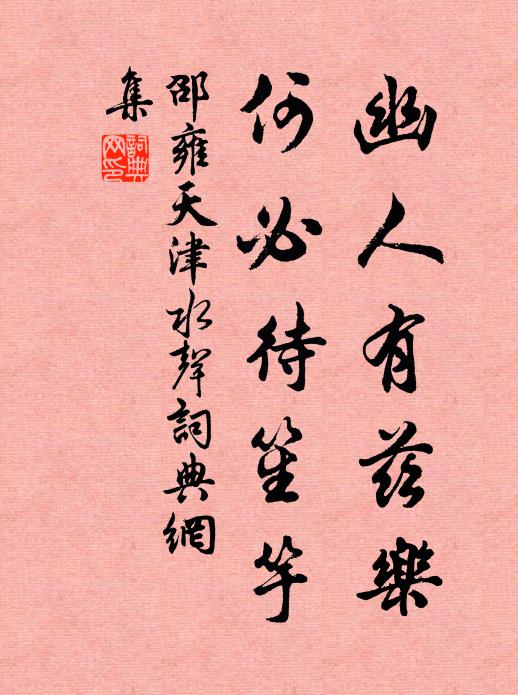 幽人有茲樂
何必待笙竽
邵雍天津水聲詞典網
集
詞典
网印